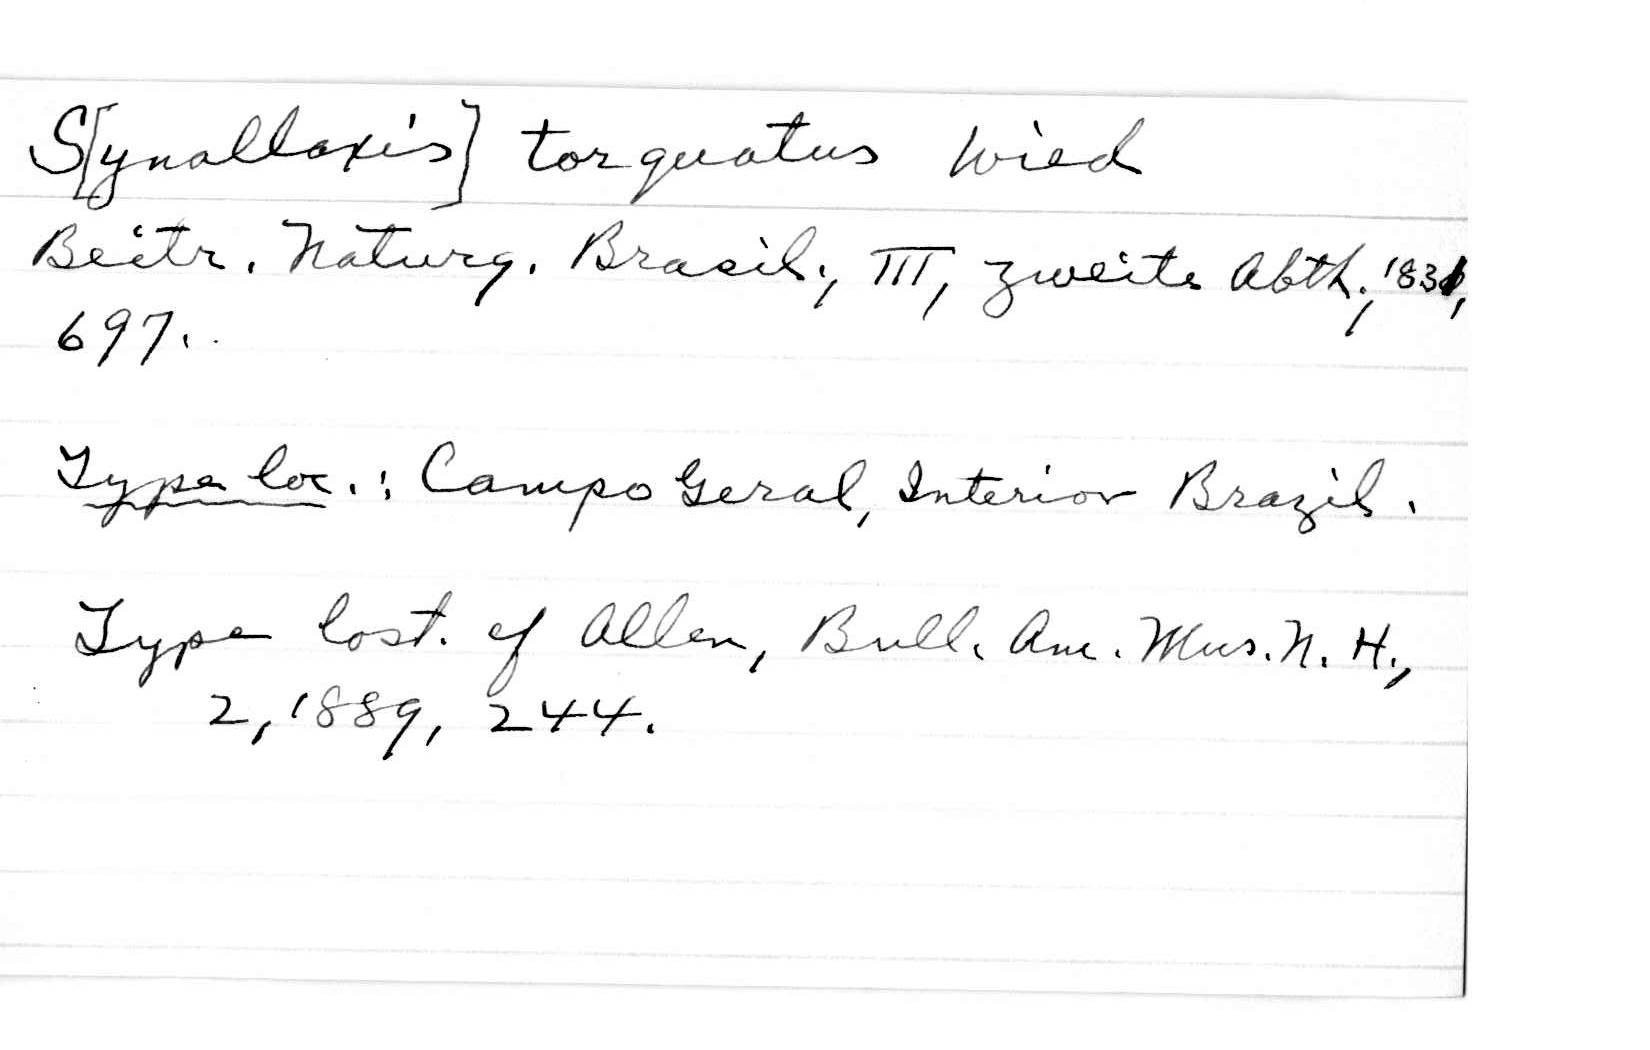 S[ynallaxis] torquatus Wied
Beitr. Naturg. Brasil., III, zweite Abth., 1831,
697.
Type loc.: Campo Geral, Interior Brazil.
Type lost. cf Allen, Bull. Am. Mus. N. H.,
2, 1889, 244.